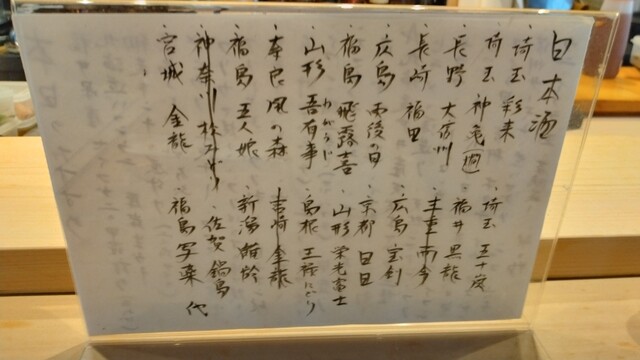 日本酒
・埼玉 彩来
・埼玉 神亀(燗)
・長野 大信州
・長崎 福田
・広島 雨後の月
・福島 飛露喜
・山形 吾有事
わがうじ
・奈良 風の森
・福島 五人娘
・神奈川 松みどり
・宮城 金龍
・埼玉 五十嵐
・福井 黒龍
・三重 而今
・広島 宝剣
・京都 日日
・山形 栄光冨士
・島根 王祿にごり
・宮崎 金龍
・新潟 鶴齢
・佐賀 鍋島
・福島 写楽